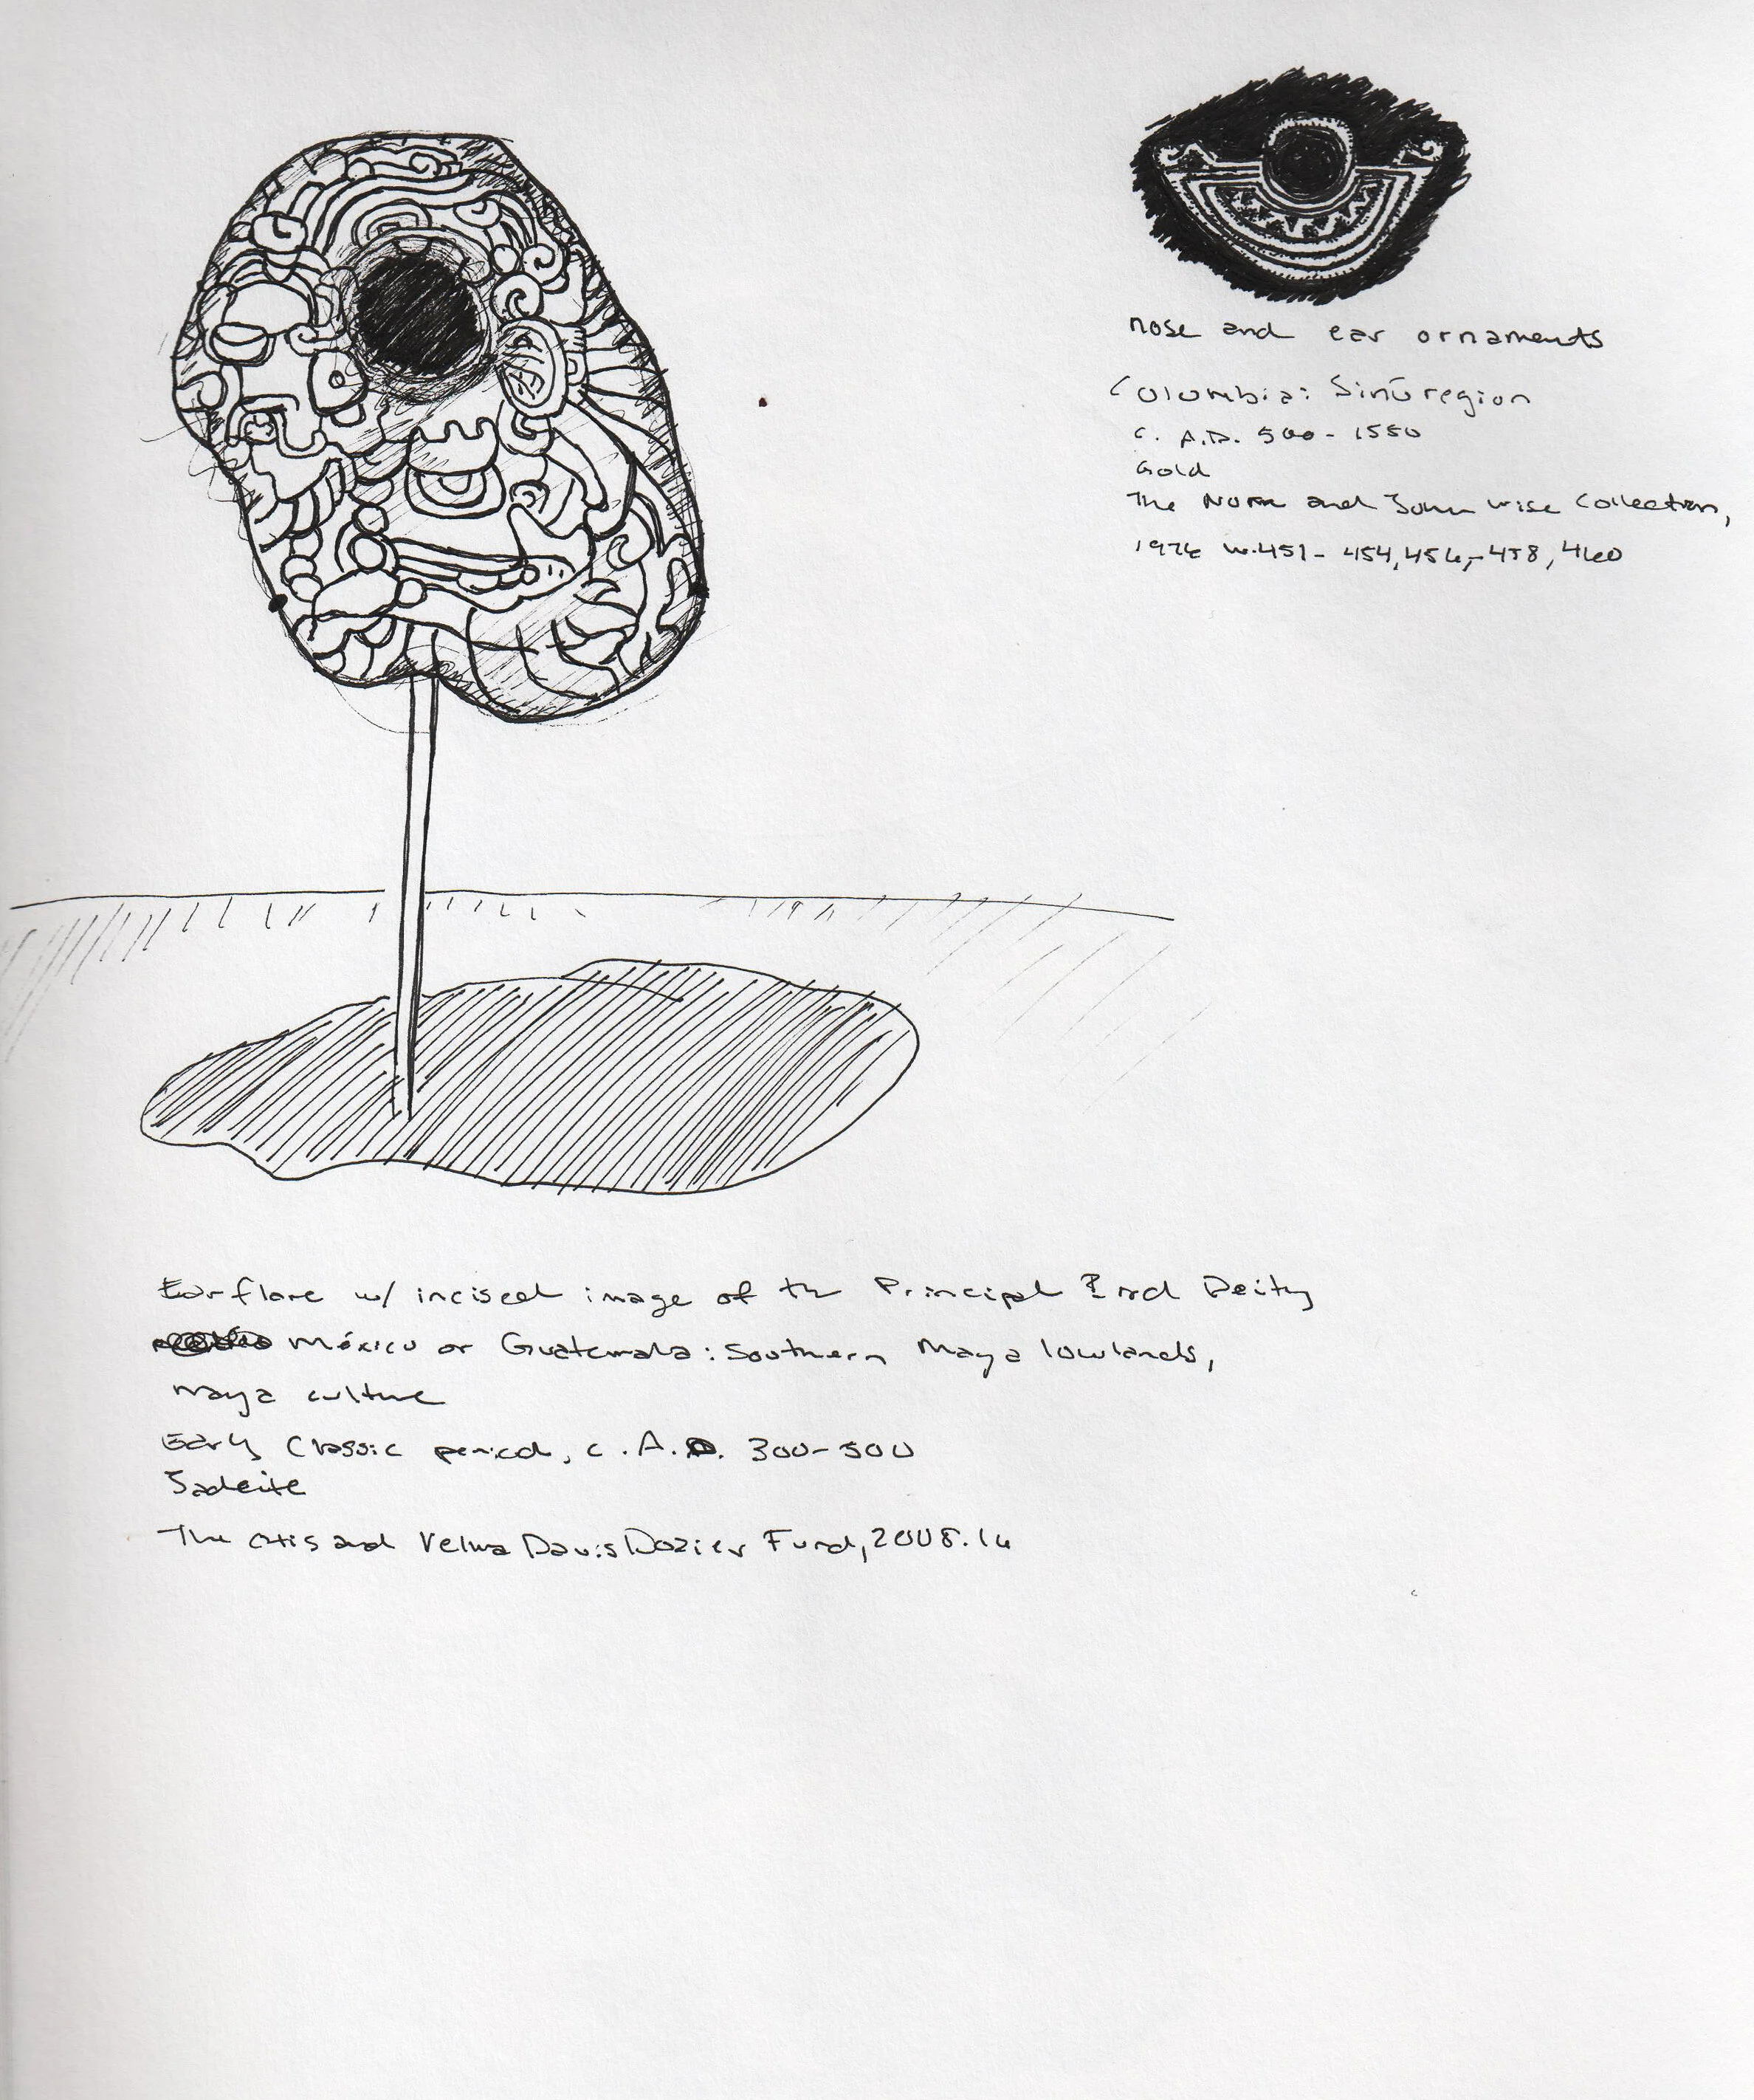 nose and ear ornaments
Columbia: Sinú region
c. A.D. 500-1550
Gold
The Nora and John Wise Collection,
1976 W.451-454,456,-458,460
Earflare w/ incised image of the Principal Bird Deity
México or Guatemala: Southern Maya lowlands,
Maya culture
Early Classic period, c. A.D. 300-500
Jadeite
The Otis and Velma Davis Dozier Fund, 2008.16